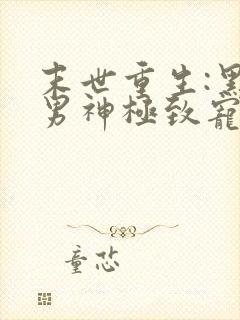 末世重生:黑
男神極致寵
童芯